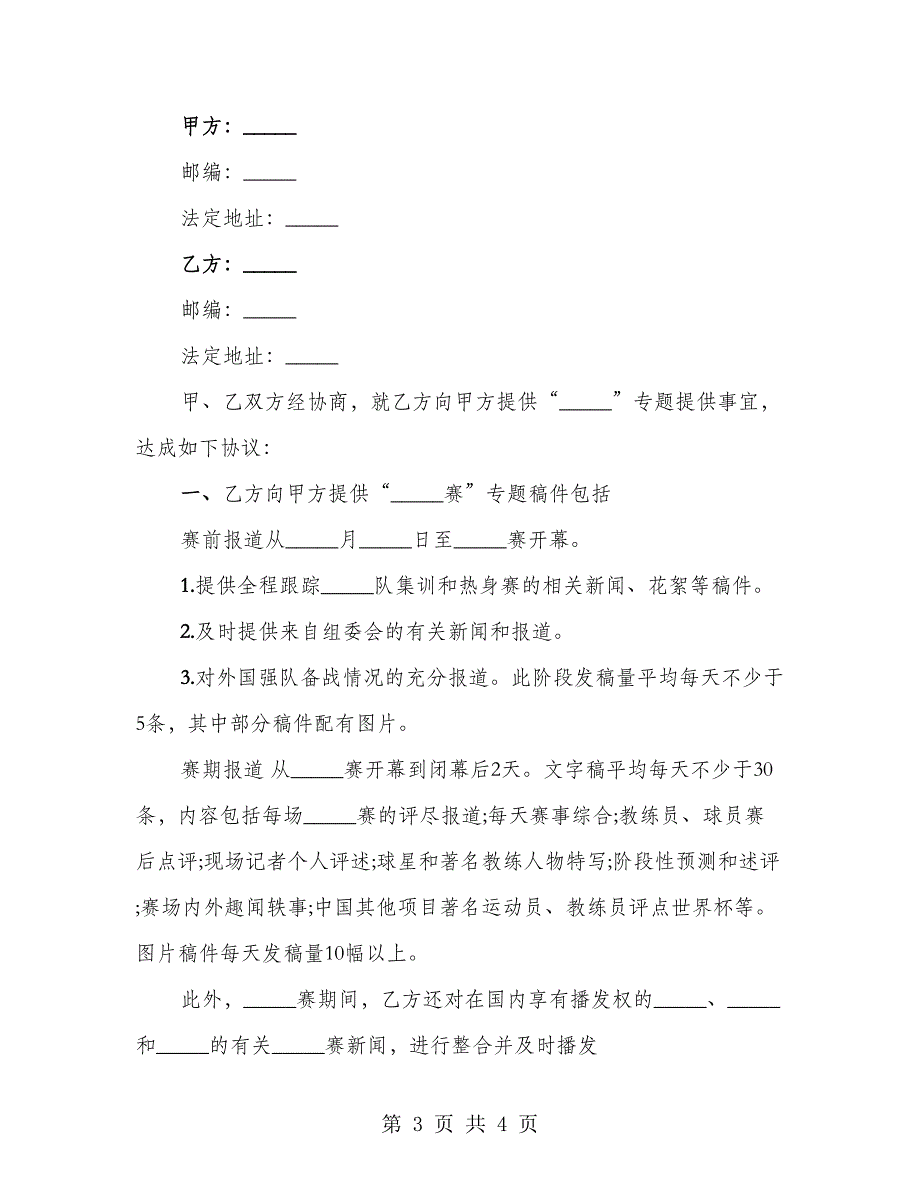 甲方：_____
邮编：_____
法定地址：_____
乙方：_____
邮编：_____
法定地址：_____
甲、乙双方经协商，就乙方向甲方提供“_____”专题提供事宜，
达成如下协议：
一、乙方向甲方提供“_____赛”专题稿件包括
赛前报道从_____月_____日至_____赛开幕。
1.提供全程跟踪_____队集训和热身赛的相关新闻、花絮等稿件。
2.及时提供来自组委会的有关新闻和报道。
3.对外国强队备战情况的充分报道。此阶段发稿量平均每天不少于
5条，其中部分稿件配有图片。
赛期报道 从_____赛开幕到闭幕后2天。文字稿平均每天不少于30
条，内容包括每场_____赛的评尽报道;每天赛事综合;教练员、球员赛
后点评;现场记者个人评述;球星和著名教练人物特写;阶段性预测和述评
;赛场内外趣闻轶事;中国其他项目著名运动员、教练员评点世界杯等。
图片稿件每天发稿量10幅以上。
此外，_____赛期间，乙方还对在国内享有播发权的_____、_____
和_____的有关_____赛新闻，进行整合并及时播发
第 3 页 共 4 页